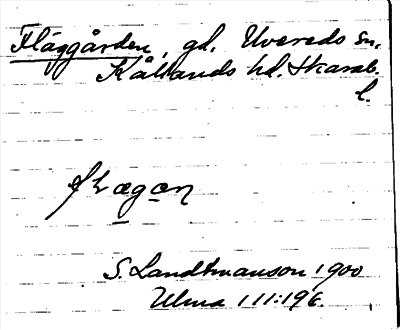 Fläggården, gd. Uvereds sn,
Kållands hd. Skarab.
l.
S. Landtmanson 1900
Ulma 111:196.